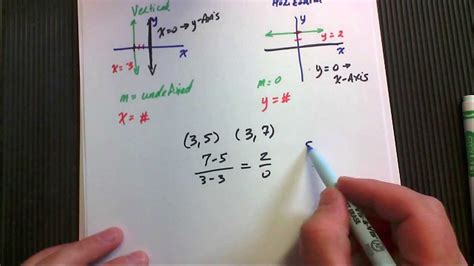 Vertical
y
x=0 → y-Axis
x
x=-3
m = undefined
x = #
y
y = 2
x
y=0 →
x-Axis
m=0
y = #
(3,5) (3,7)
7-5
3-3
=
2
0